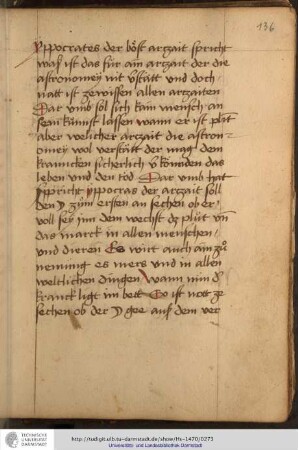 136
yppocrates der böst artzait spricht
waß ist das für ain artzait der die
astronomey nit v̈statt vnd doch
natt ist zewissen allen artzaiten
Dar vmb sol sich kain mensch an
sein kunst lassen wann er ist plint
aber welicher artzait die astron
omey wol verstätt der mag dem
krancken sicherlich v̈ künden das
leben vnd den tod Dar vmb hat
ypocras der artzait soll
den zům ersten an sechen ob er
voll sey jnn dem wechst dz plůt vnd
das marck in allen menschen
vnd dieren Es wirt auch ain zů
nemung es mers vnd in allen
weltlichen dingen wann nun d
kranck ligt im bett So ist nott ze
sechen ob der gee auf dem ver
TECHNISCHE
UNIVERSITÄT
DARMSTADT
http://tudigit.ulb.tu-darmstadt.de/show/Hs-1470/0273
Universitäts- und Landesbibliothek Darmstadt